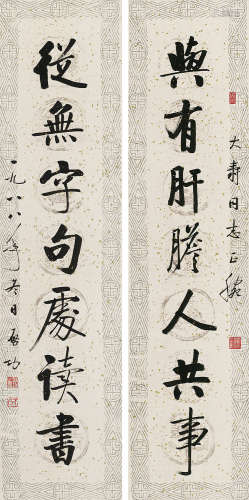 大寿同志正腕
與有肝膽人共事
從無字句處读書
一九八八年冬日启功